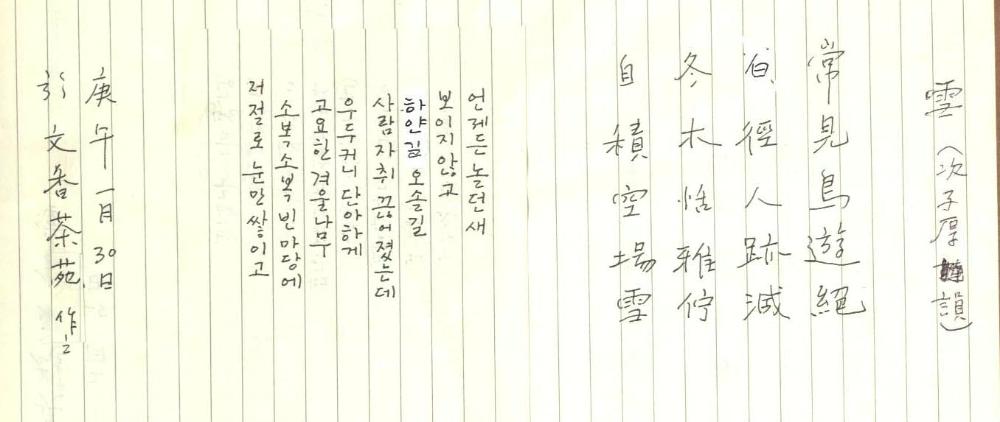 雪 (次子厚 韻)
常見鳥遊絕
白徑人跡滅
冬木恬雅佇
自積空場雪
언제든 놀던새
보이지 않고
하얀길 오솔길
사람자취 끊어졌는데
우두커니 단아하게
고요한 겨울나무
소복소복 빈 마당에
저절로 눈만 쌓이고
庚午一月30日
於 文香茶苑 作